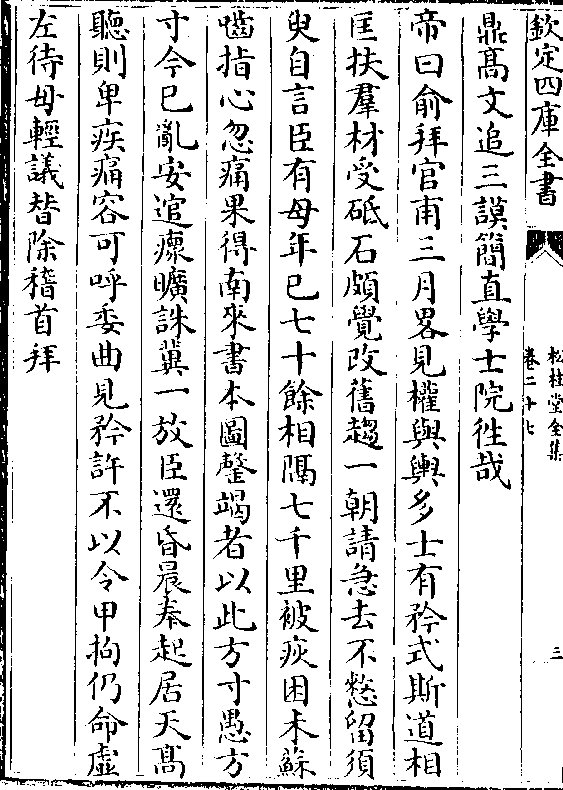 欽定四庫全書
松桂堂全集
卷二十七
三
鼎髙文追三謨簡直學士院徃哉
帝曰俞拜官甫三月畧見權與輿多士有矜式斯道相
匡扶羣材受砥石頗覺改舊趨一朝請急去不憗留須
臾自言臣有母年已七十餘相隔七千里被疾困未蘇
嚙指心忽痛果得南來書本圖罄竭者以此方寸愚方
寸今已亂安逭瘝曠誅冀一放臣還昏晨奉起居天髙
聽則卑疾痛容可呼委曲見矜許不以令甲拘仍命虛
左待毋輕議朁除稽首拜